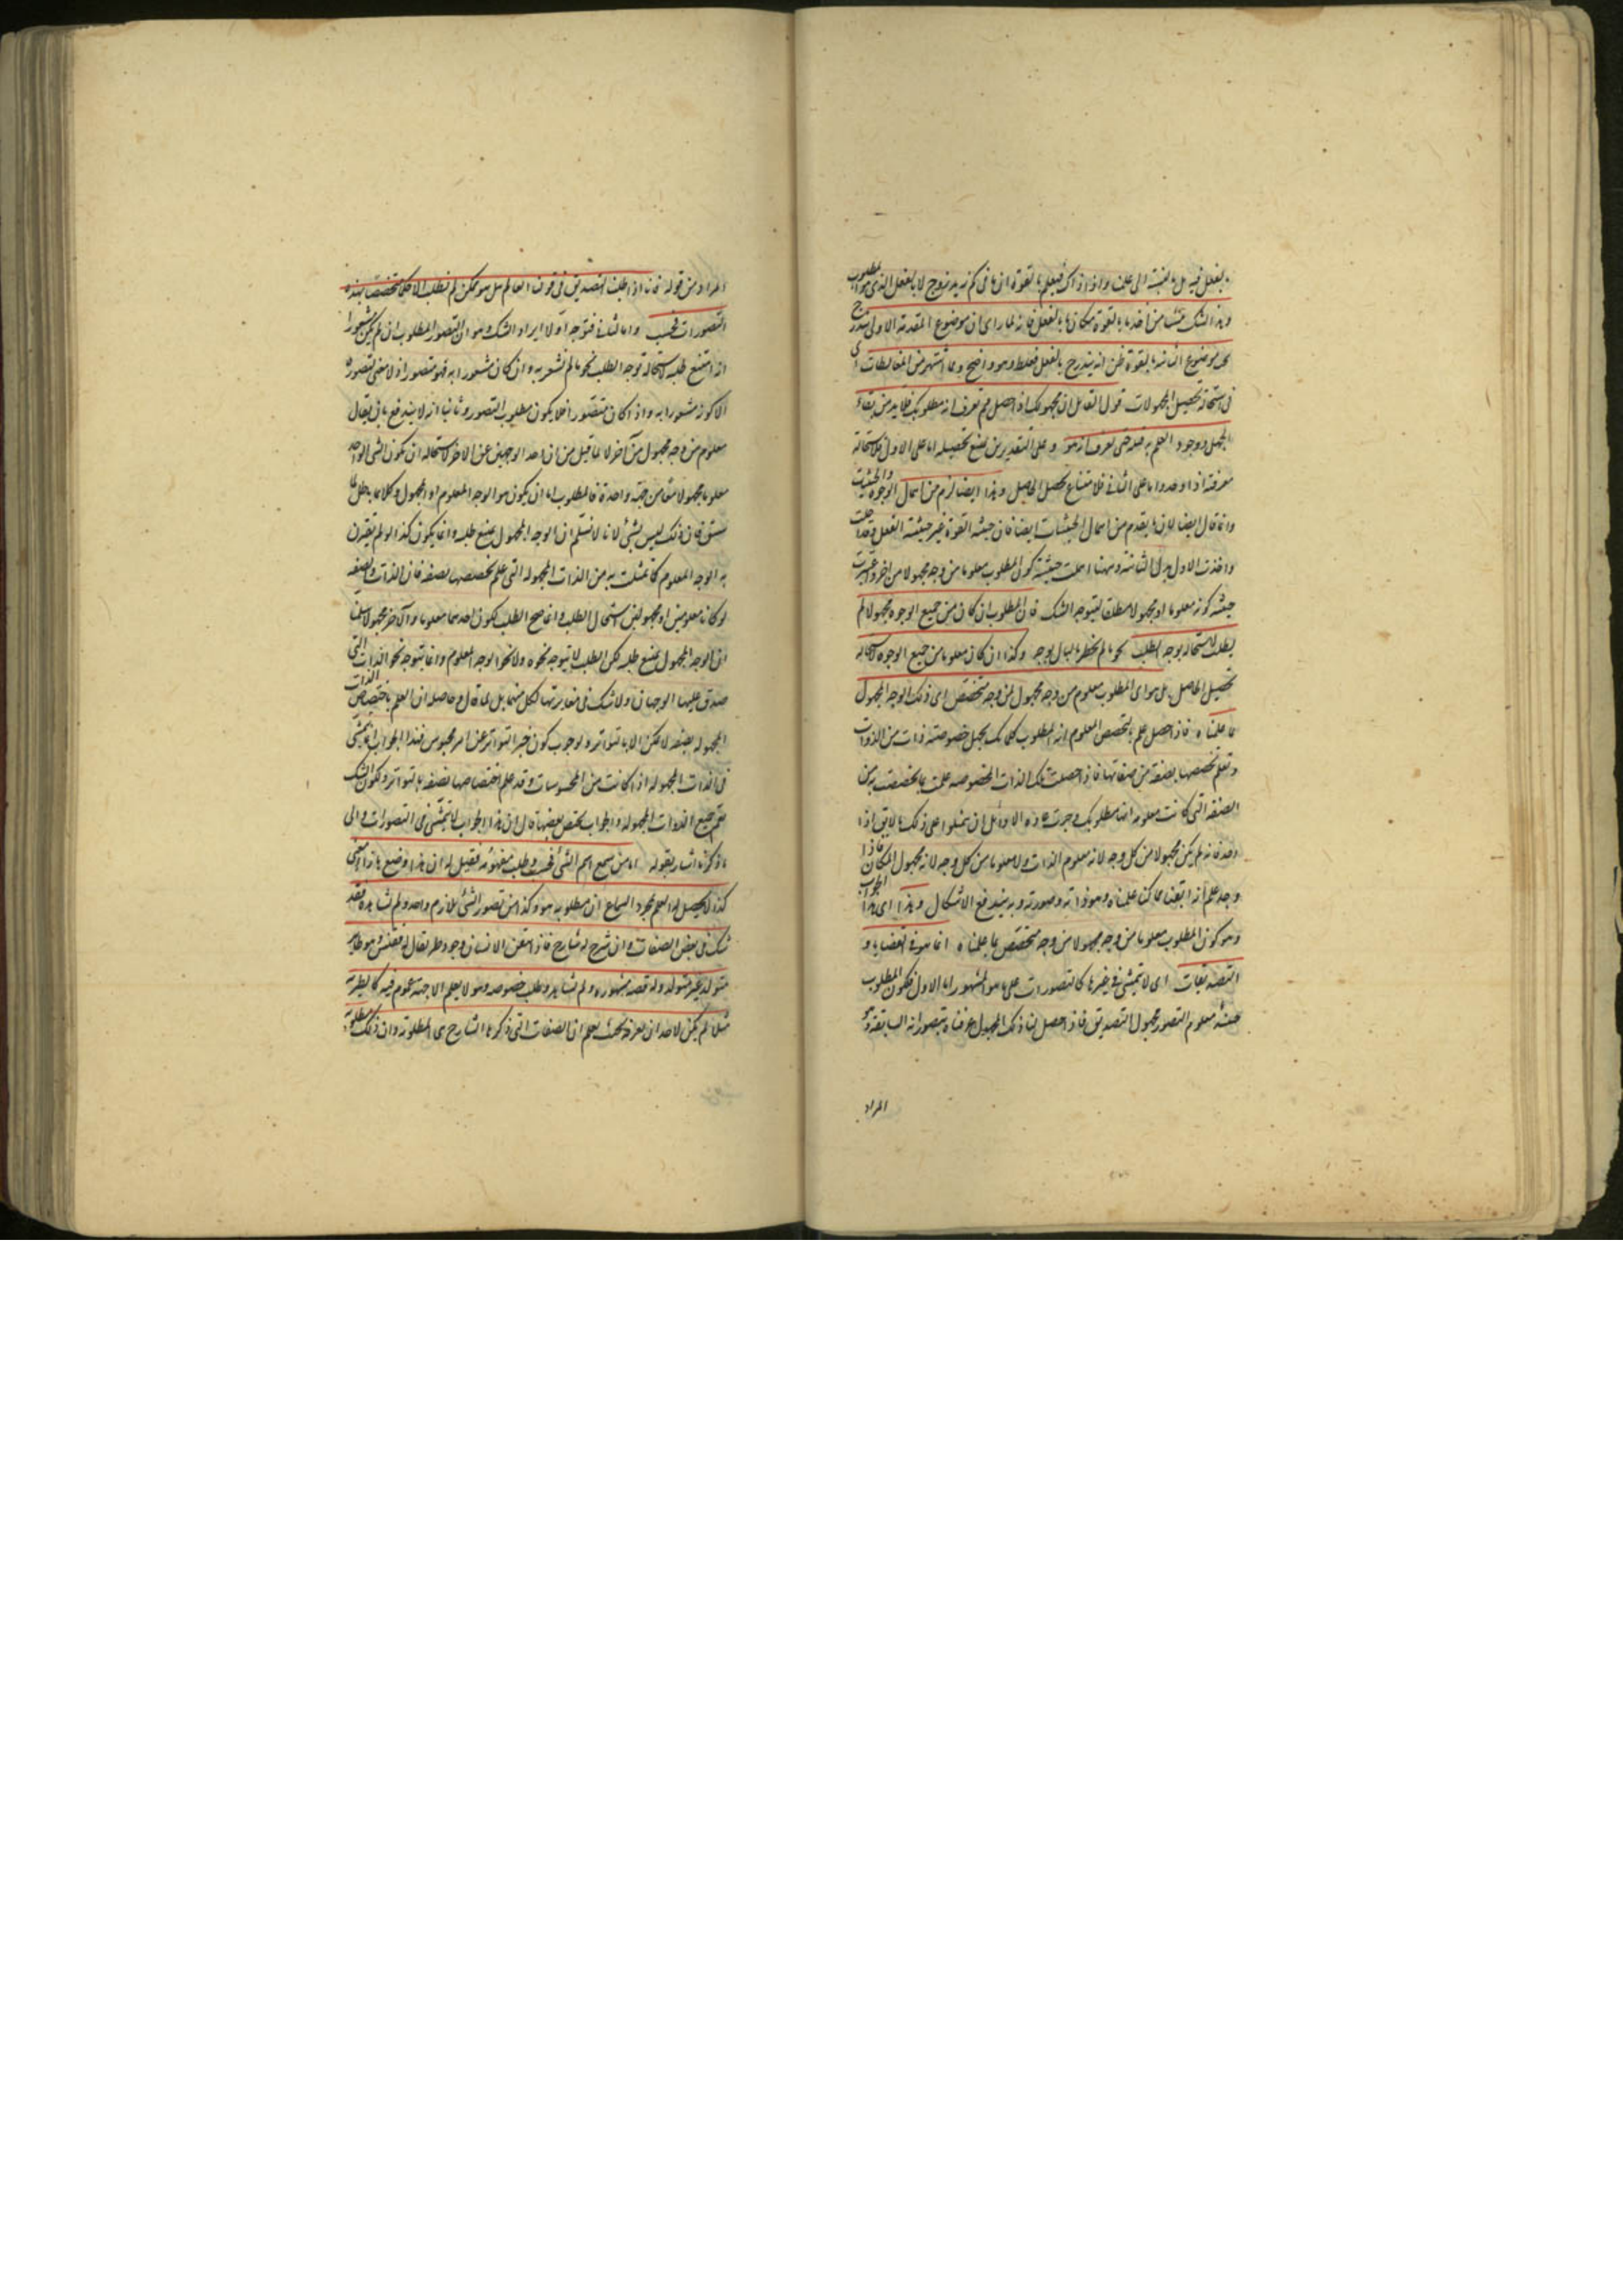 بالفعل فيه بل بالنسبة الى علمنا واذ ذاك فيعلم بالقوة ان ما فى كم زيد زوج لا بالفعل الذى هو المطلوب
وهذا الشك نشأ من اخذ ما بالقوة مكان ما بالفعل فانه لما راى ان موضوع المقدمة الاولى يندرج
تحت موضوع الثانية بالقوة ظن انه يندرج بالفعل فغلط وهو واضح ومما اشتهر من المغالطات
فى استحالة تحصيل المجهولات قول القائل ان مجهولك اذا حصل فبم تعرف انه مطلوبك فلا بد من بقاء
الجهل او وجود العلم به قبله حتى يعرف انه هو وعلى التقديرين يمتنع تحصيله اما على الاول فلاستحالة
معرفته اذا وجد واما على الثانى فلامتناع تحصيل الحاصل وهذا ايضا لزم من اهمال الوجوه والحيثيات
وانما قال ايضا لان ما يقدم من اهمال الحيثيات ايضا فان حيثية القوة غير حيثية الفعل وقد اهملت
واخذت الاول بدل الثانية وههنا اهملت حيثية كون المطلوب معلوما من وجه مجهولا من اخر واعتبرت
حيثية كونه معلوما او مجهولا مطلقا ليتوجه الشك فان المطلوب ان كان من جميع الوجوه مجهولا لم
يطلب لاستحالة توجه الطلب نحو ما لم يخطر بالبال بوجه وكذا ان كان معلوما من جميع الوجوه لاستحالة
تحصيل الحاصل بل هو اى المطلوب معلوم من وجه مجهول من وجه متخصص اى ذلك الوجه المجهول
بما علمناه فاذا حصل علم بالتخصص المعلوم انه المطلوب كما يجهل خصوصية ذات من الذوات
ونعلم تخصصها بصفة من صفاتها فاذا حصلت تلك الذات المخصوصة علمت بما تخصصت به من
الصفة التى كانت معلومة انها مطلوبك وجرت عادة الاوائل ان يمثلوا على ذلك بالآبق اذا
وجد فانه لم يكن مجهولا من كل وجه لانه معلوم الذات ولا معلوما من كل وجه لانه مجهول المكان فاذا
وجد علم انه آبقنا مما كنا علمناه وهو ذاته وصورته وبه يندفع الاشكال وهذا اى هذا الجواب
وهو كون المطلوب معلوما من وجه مجهولا من وجه متخصص بما علمناه انما هو فى القضايا و
التصديقات اى لا يتمشى فى غيرها كالتصورات على ما هو المشهور اما الاول فلكون المطلوب
حينئذ معلوم التصور مجهول التصديق فاذا حصل لنا ذلك المجهول عرفناه بتصوراته السابقة وهو
المراد
المراد من قوله فانا اذا طلبنا التصديق فى قولنا العالم هل هو ممكن لم نطلب الا حكما يتخصص بهذه
التصورات فحسب واما الثانى فنوجه اولا ايراد الشك وهو ان التصور المطلوب ان لم يكن مشعورا
به امتنع طلبه لاستحالة توجه الطلب نحو ما لم نشعر به وان كان مشعورا به فهو متصور اذ لا معنى لتصوره
الا كونه مشعورا به واذا كان متصورا فلا يكون مطلوب التصور وثانيا انه لا يندفع بان يقال
معلوم من وجه مجهول من آخر لا لما قيل من ان احد الوجهين عين الاخر لاستحالة ان يكون الشئ الواحد
معلوما مجهولا معا من جهة واحدة فالمطلوب اما ان يكون هو الوجه المعلوم او المجهول وكلاهما باطل لما
سبق فان ذلك ليس بشئ لانا لا نسلم ان الوجه المجهول يمتنع طلبه وانما يكون كذا لو لم يقترن
به الوجه المعلوم كما تمثلت به من الذات المجهولة التى علم تخصصها بصفة فان الذات والصفة
لو كانا معلومين او مجهولين استحال الطلب وانما صح الطلب لكون احدهما معلوما والآخر مجهولا سلمنا
ان الوجه المجهول يمتنع طلبه لكن الطلب لا يتوجه نحوه ولا نحو الوجه المعلوم وانما يتوجه نحو الذات التى
صدق عليها الوجهان ولا شك فى مغايرتها لكل منهما بل لما قال وحاصله ان العلم باختصاص الذات
المجهولة بصفة لا يمكن الا بالتواتر ولوجوب كون خبر التواتر عن امر محسوس فهذا الجواب انما يتمشى
فى الذات المجهولة اذا كانت من المحسوسات وقد علم اختصاصها بصفة بالتواتر ولكون الشك
يعم جميع الذوات المجهولة والجواب يختص ببعضها قال ان هذا الجواب لا يتمشى فى التصورات والى
ما ذكرنا اشار بقوله اما من سمع اسم الشئ فحسب وطلب مفهومه فقيل له ان هذا وضع بازاء معنى
كذا لا يحصل له العلم بمجرد السماع ان مطلوبه هو وكذا من تصور الشئ بلازم واحد ولم يشاهده فقد
شك فى بعض الصفات وان شرح له شارح فاذا تيقن الانسان وجود طير يقال له ققنس وهو طاير
متولد غير متوالد وله قصة مشهورة ولم يشاهد وطلب خصوصه وهو لا يعلم الا جهة عموم فيه كالطيرية
مثلا لم يمكن لاحد ان يعرفه بحيث يعلم ان الصفات التى ذكرها الشارح هى المطلوبة وان ذلك مطلوبه